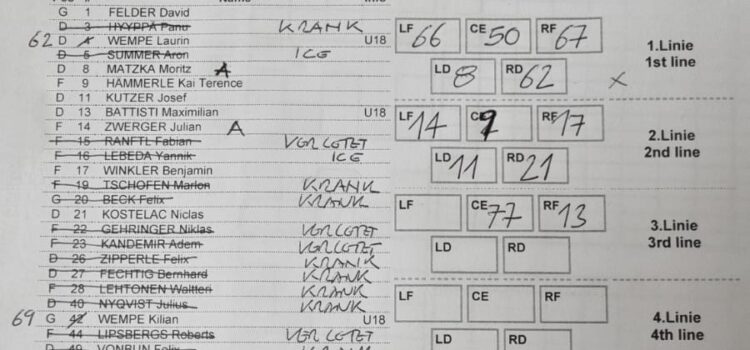 G 1 FELDER David
D 3 HYYPPÄ Panu KRANK
62 D 4 WEMPE Laurin U18
D 5 SUMMER Aron ICE
D 8 MATZKA Moritz A
F 9 HÄMMERLE Kai Terence
D 11 KUTZER Josef
D 13 BATTISTI Maximilian U18
F 14 ZWERGER Julian A
F 15 RANFTL Fabian VERLETZT
F 16 LEBEDA Yannik ICE
F 17 WINKLER Benjamin
F 19 TSCHOFEN Marlon KRANK
G 20 BECK Felix KRANK
D 21 KOSTELAC Niclas
F 22 GEHRINGER Niklas VERLETZT
F 23 KANDEMIR Adem VERLETZT
D 26 ZIPPERLE Felix KRANK
D 27 FECHTIG Bernhard KRANK
F 28 LEHTONEN Waltteri KRANK
D 40 NYQVIST Julius KRANK
69 G 42 WEMPE Kilian U18
F 44 LIPSBERGS Roberts VERLETZT
D 49 VONBUN Felix
LF 66 CE 50 RF 67
LD 8 RD 62 X
1.Linie
1st line
LF 14 CE 9 RF 17
LD 11 RD 21
2.Linie
2nd line
LF CE 77 RF 13
LD RD
3.Linie
3rd line
LF CE RF
LD RD
4.Linie
4th line